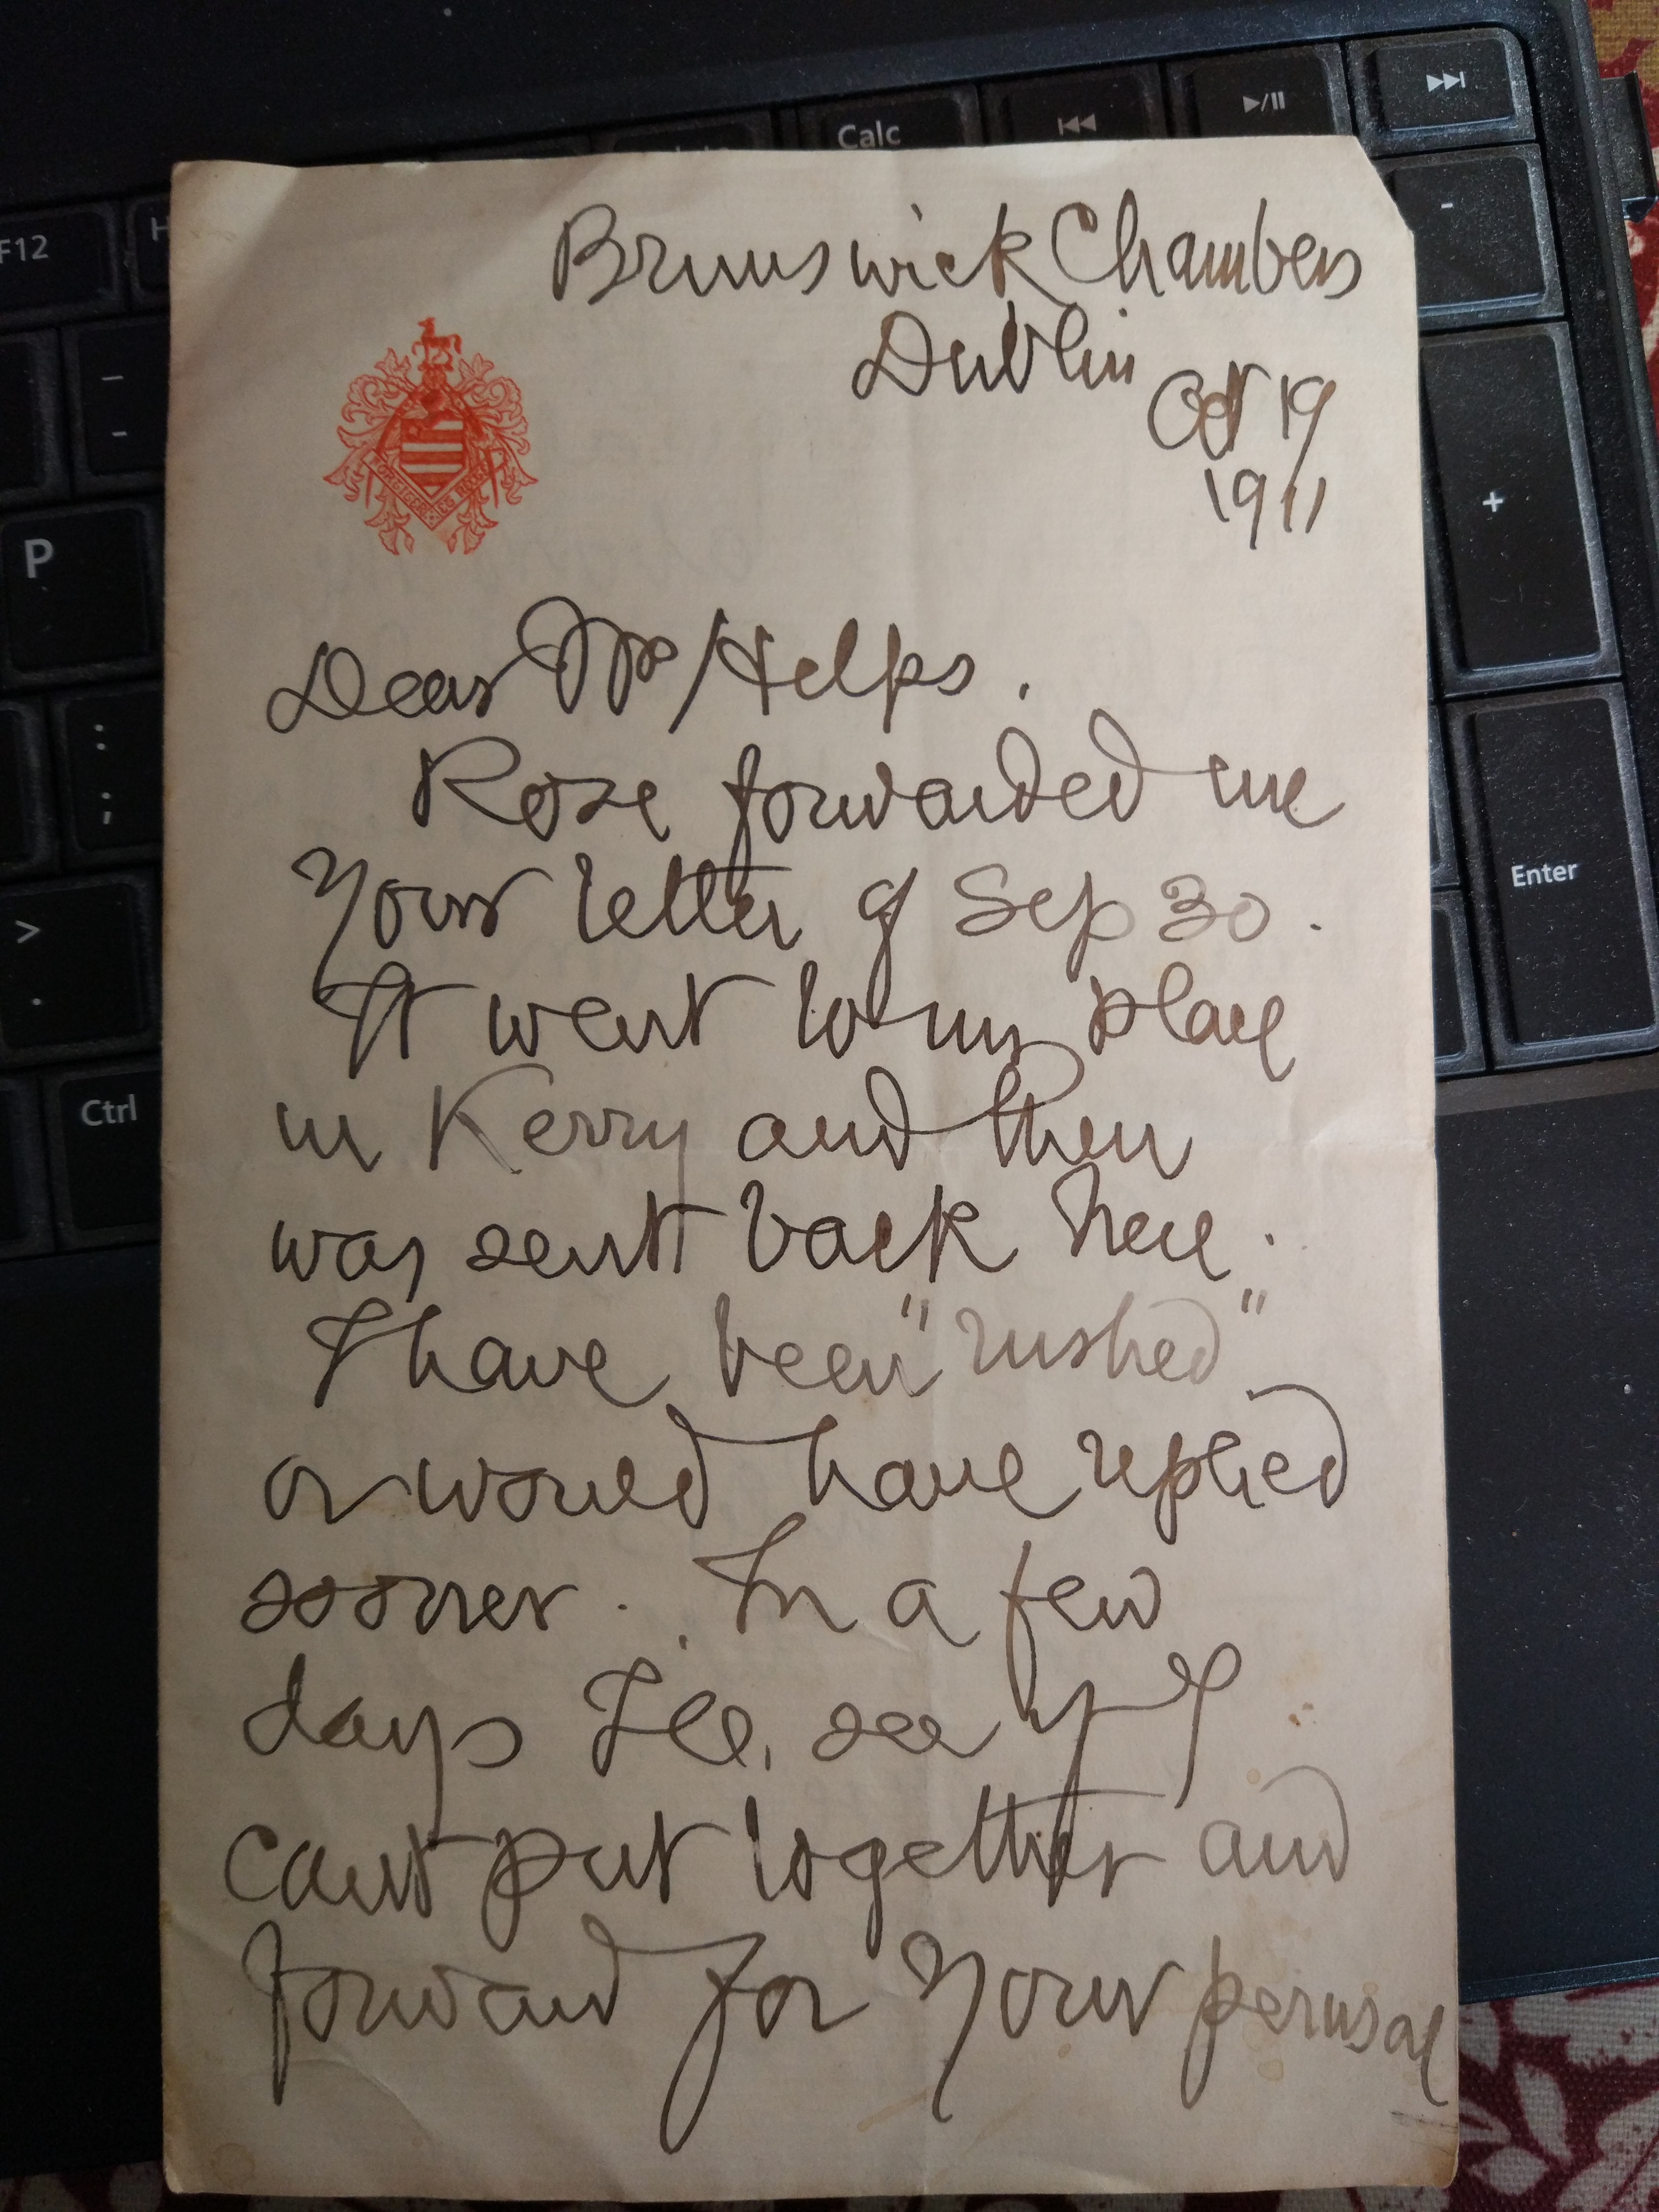 Brunswick Chambers
Dublin
Oct 19
1911
Dear Mr Helps.
Rose forwarded me
Your letter of Sep 30.
It went to my place
in Kerry and then
was sent back here.
I have been "rushed"
or would have replied
sooner. In a few
days I'll see if I
cant put together and
forward for Your perusal
F12
H
Calc
P
-
+
:
;
>
.
Enter
Ctrl